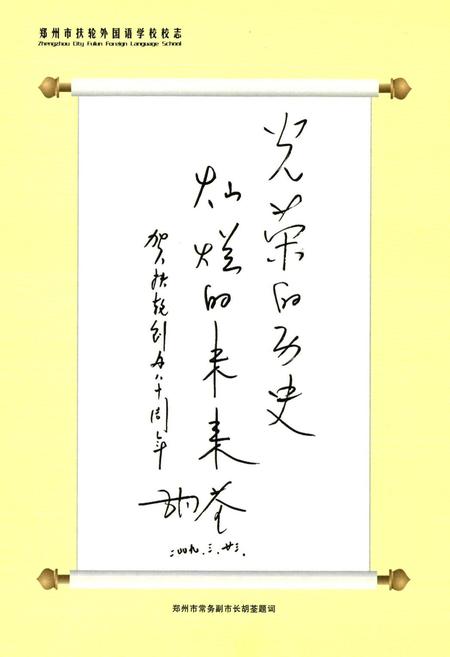 郑州市扶轮外国语学校校志
Zhengzhou City Fulun Foreign Language School
光荣的历史
灿烂的未来
贺扶轮创办八十周年
胡荃
二〇〇九.三.廿三.
郑州市常务副市长胡荃题词